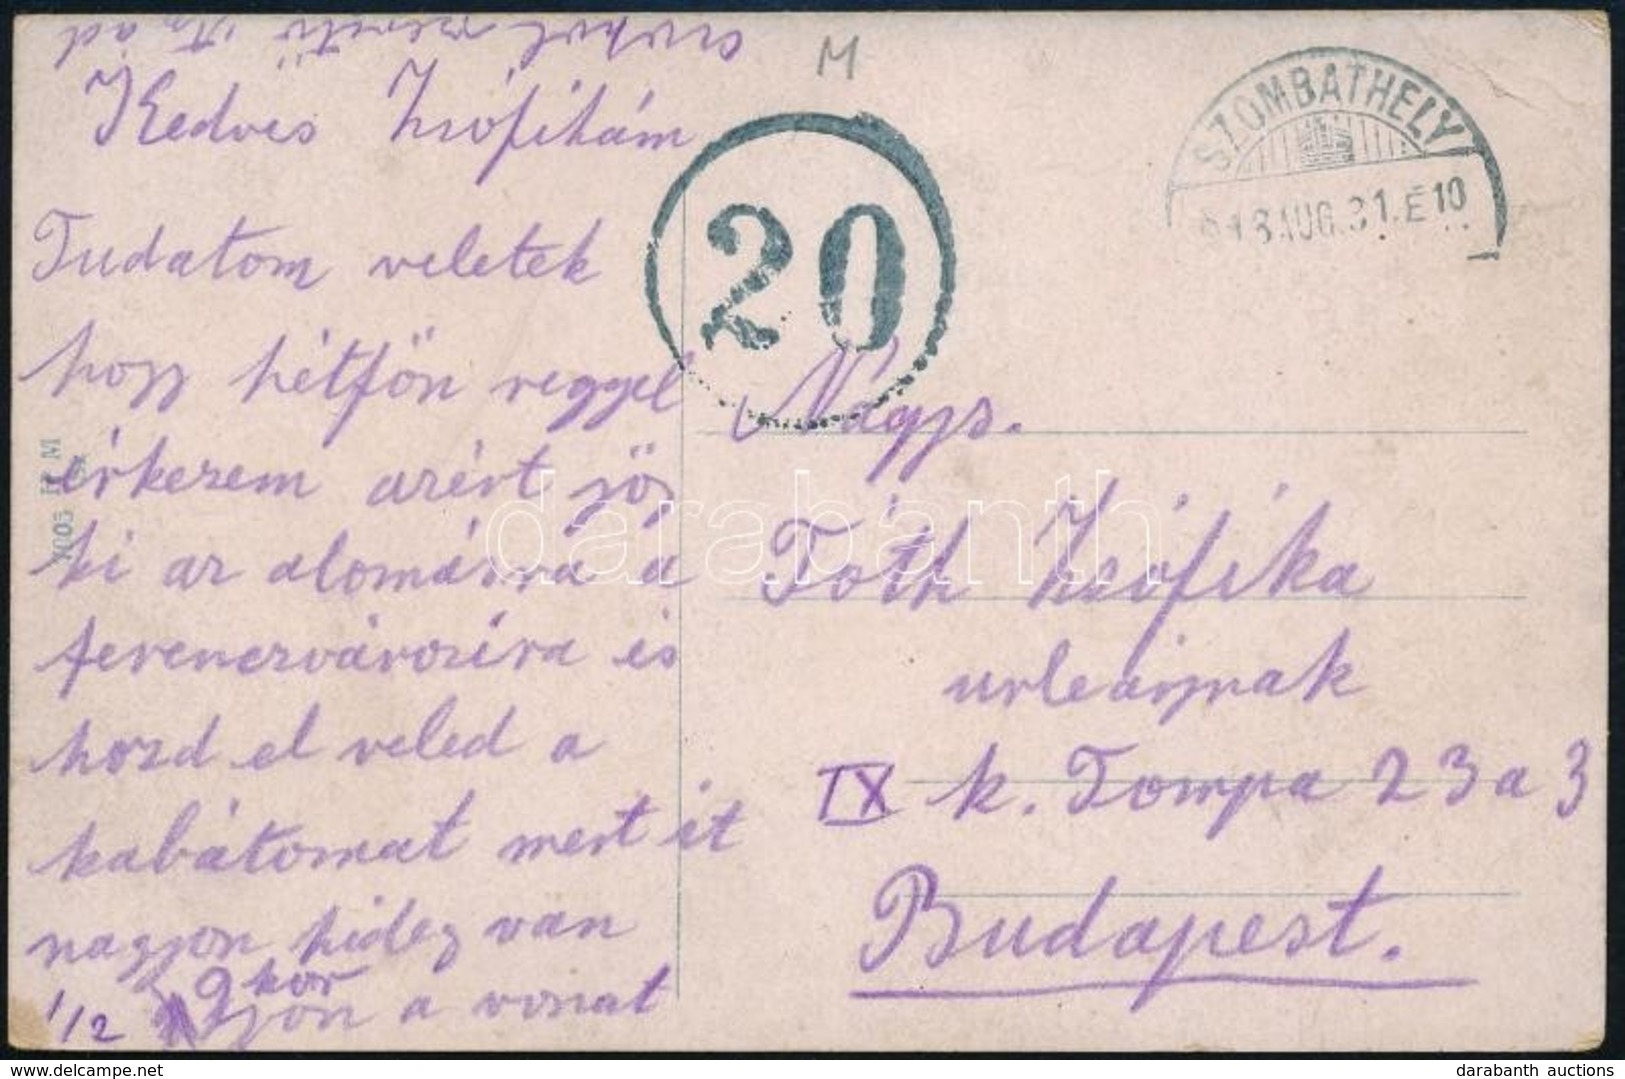 M
Kedves Zsófikám
Tudatom veletek
hogy hétfőn reggel
érkezem azért jöj
ki az alomásra a
ferenczvárosira és
hozd el veled a
kabátomat mert it
nagyon hideg van
1/2 9 kor
jön a vonat
csokol szerető
20
SZOMBATHELY
918 AUG. 31. É 10
Nágys.
Tóth Zsófika
urleánynak
IX k. Tompa 23 a 3
Budapest.
darabanth
darabanth auctions